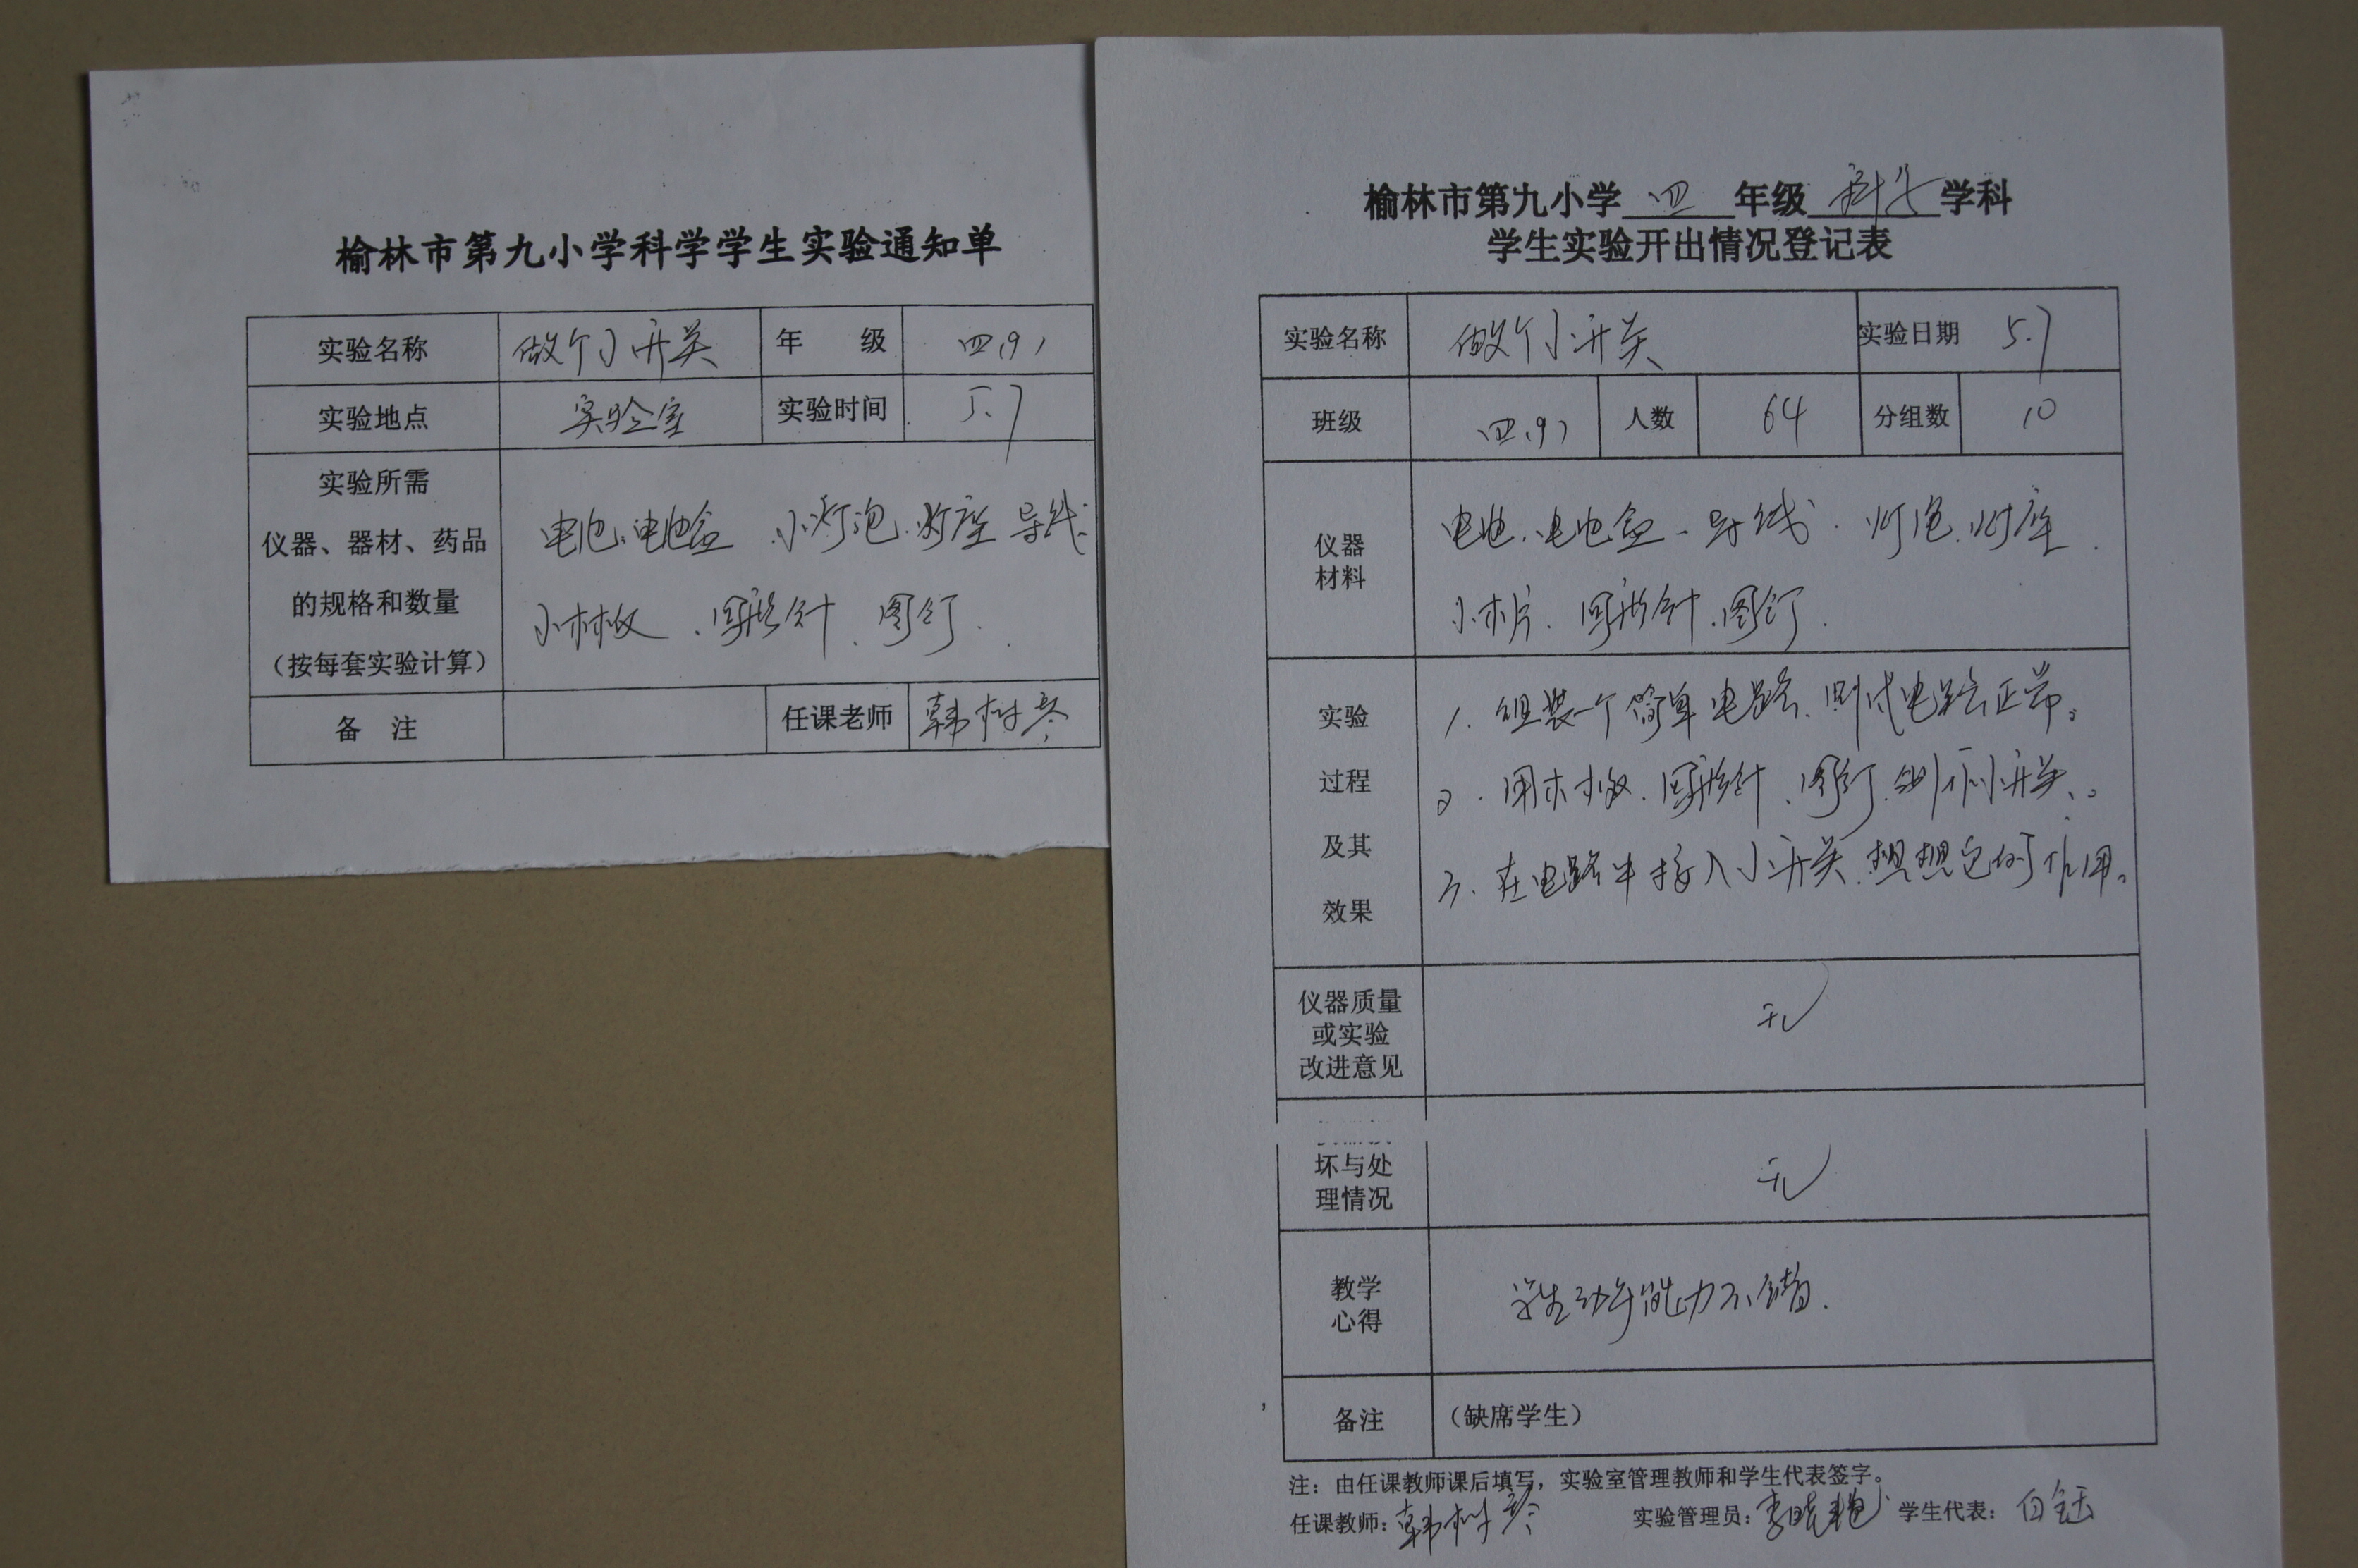 榆林市第九小学科学学生实验通知单
实验名称 做个小开关 年 级 四(9)
实验地点 实验室 实验时间 5.7
实验所需
仪器、器材、药品
的规格和数量
(按每套实验计算)
电池、电池盒、小灯泡、灯座、导线、
小木板、回形针、图钉.
备 注 任课老师 韩树琴
榆林市第九小学 四 年级 科学 学科
学生实验开出情况登记表
实验名称 做个小开关 实验日期 5.7
班级 四(9) 人数 64 分组数 10
仪器
材料
电池、电池盒、导线、灯泡、灯座、
小木片、回形针、图钉.
实验
过程
及其
效果
1. 组装一个简单电路、测试电路正常。
2. 用木板、回形针、图钉、制作小开关。
3. 在电路中接入小开关、想想它的作用。
仪器质量
或实验
改进意见
无
坏与处
理情况
无
教学
心得
学生动手能力不错.
备注 (缺席学生)
注:由任课教师课后填写,实验室管理教师和学生代表签字。
任课教师:韩树琴 实验管理员:李晓艳 学生代表:白钰